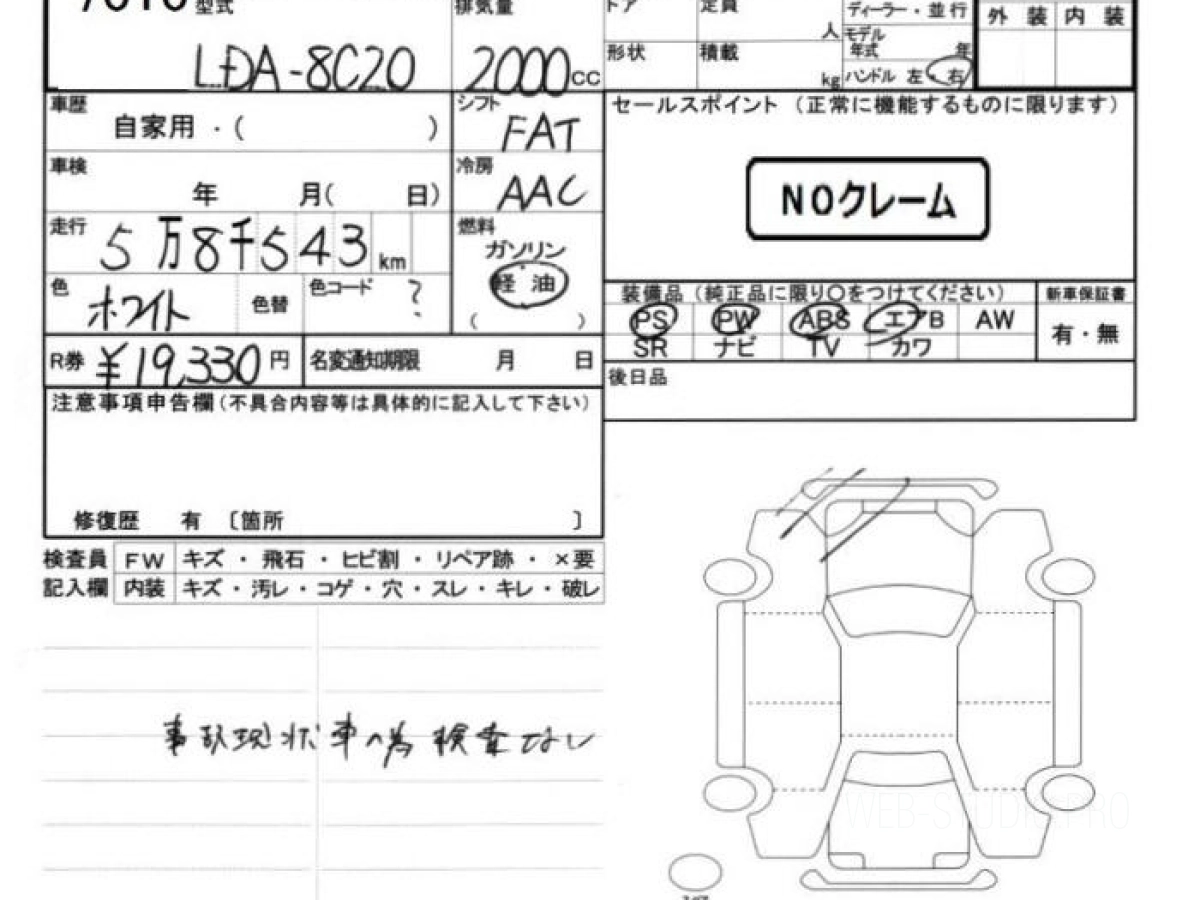 型式 LDA-8C20
排気量 2000cc
ドア 定員 人
ディーラー・並行
モデル年式 年
外装 内装
形状 積載 kg
ハンドル 左・右
車歴 自家用・( )
シフト FAT
セールスポイント (正常に機能するものに限ります)
車検 年 月( 日)
冷房 AAC
NOクレーム
走行 5万8千543km
燃料 ガソリン
軽油
( )
色 ホワイト 色替 色コード ?
装備品 (純正品に限り○をつけてください) 新車保証書
PS PW ABS エアB AW 有・無
SR ナビ TV カワ
R券 ¥19,330円 名変通知期限 月 日
後日品
注意事項申告欄(不具合内容等は具体的に記入して下さい)
修復歴 有 〔箇所 〕
検査員 FW キズ・飛石・ヒビ割・リペア跡・×要
記入欄 内装 キズ・汚レ・コゲ・穴・スレ・キレ・破レ
事故現状車の為 検査なし
WEB-STUDIO.PRO